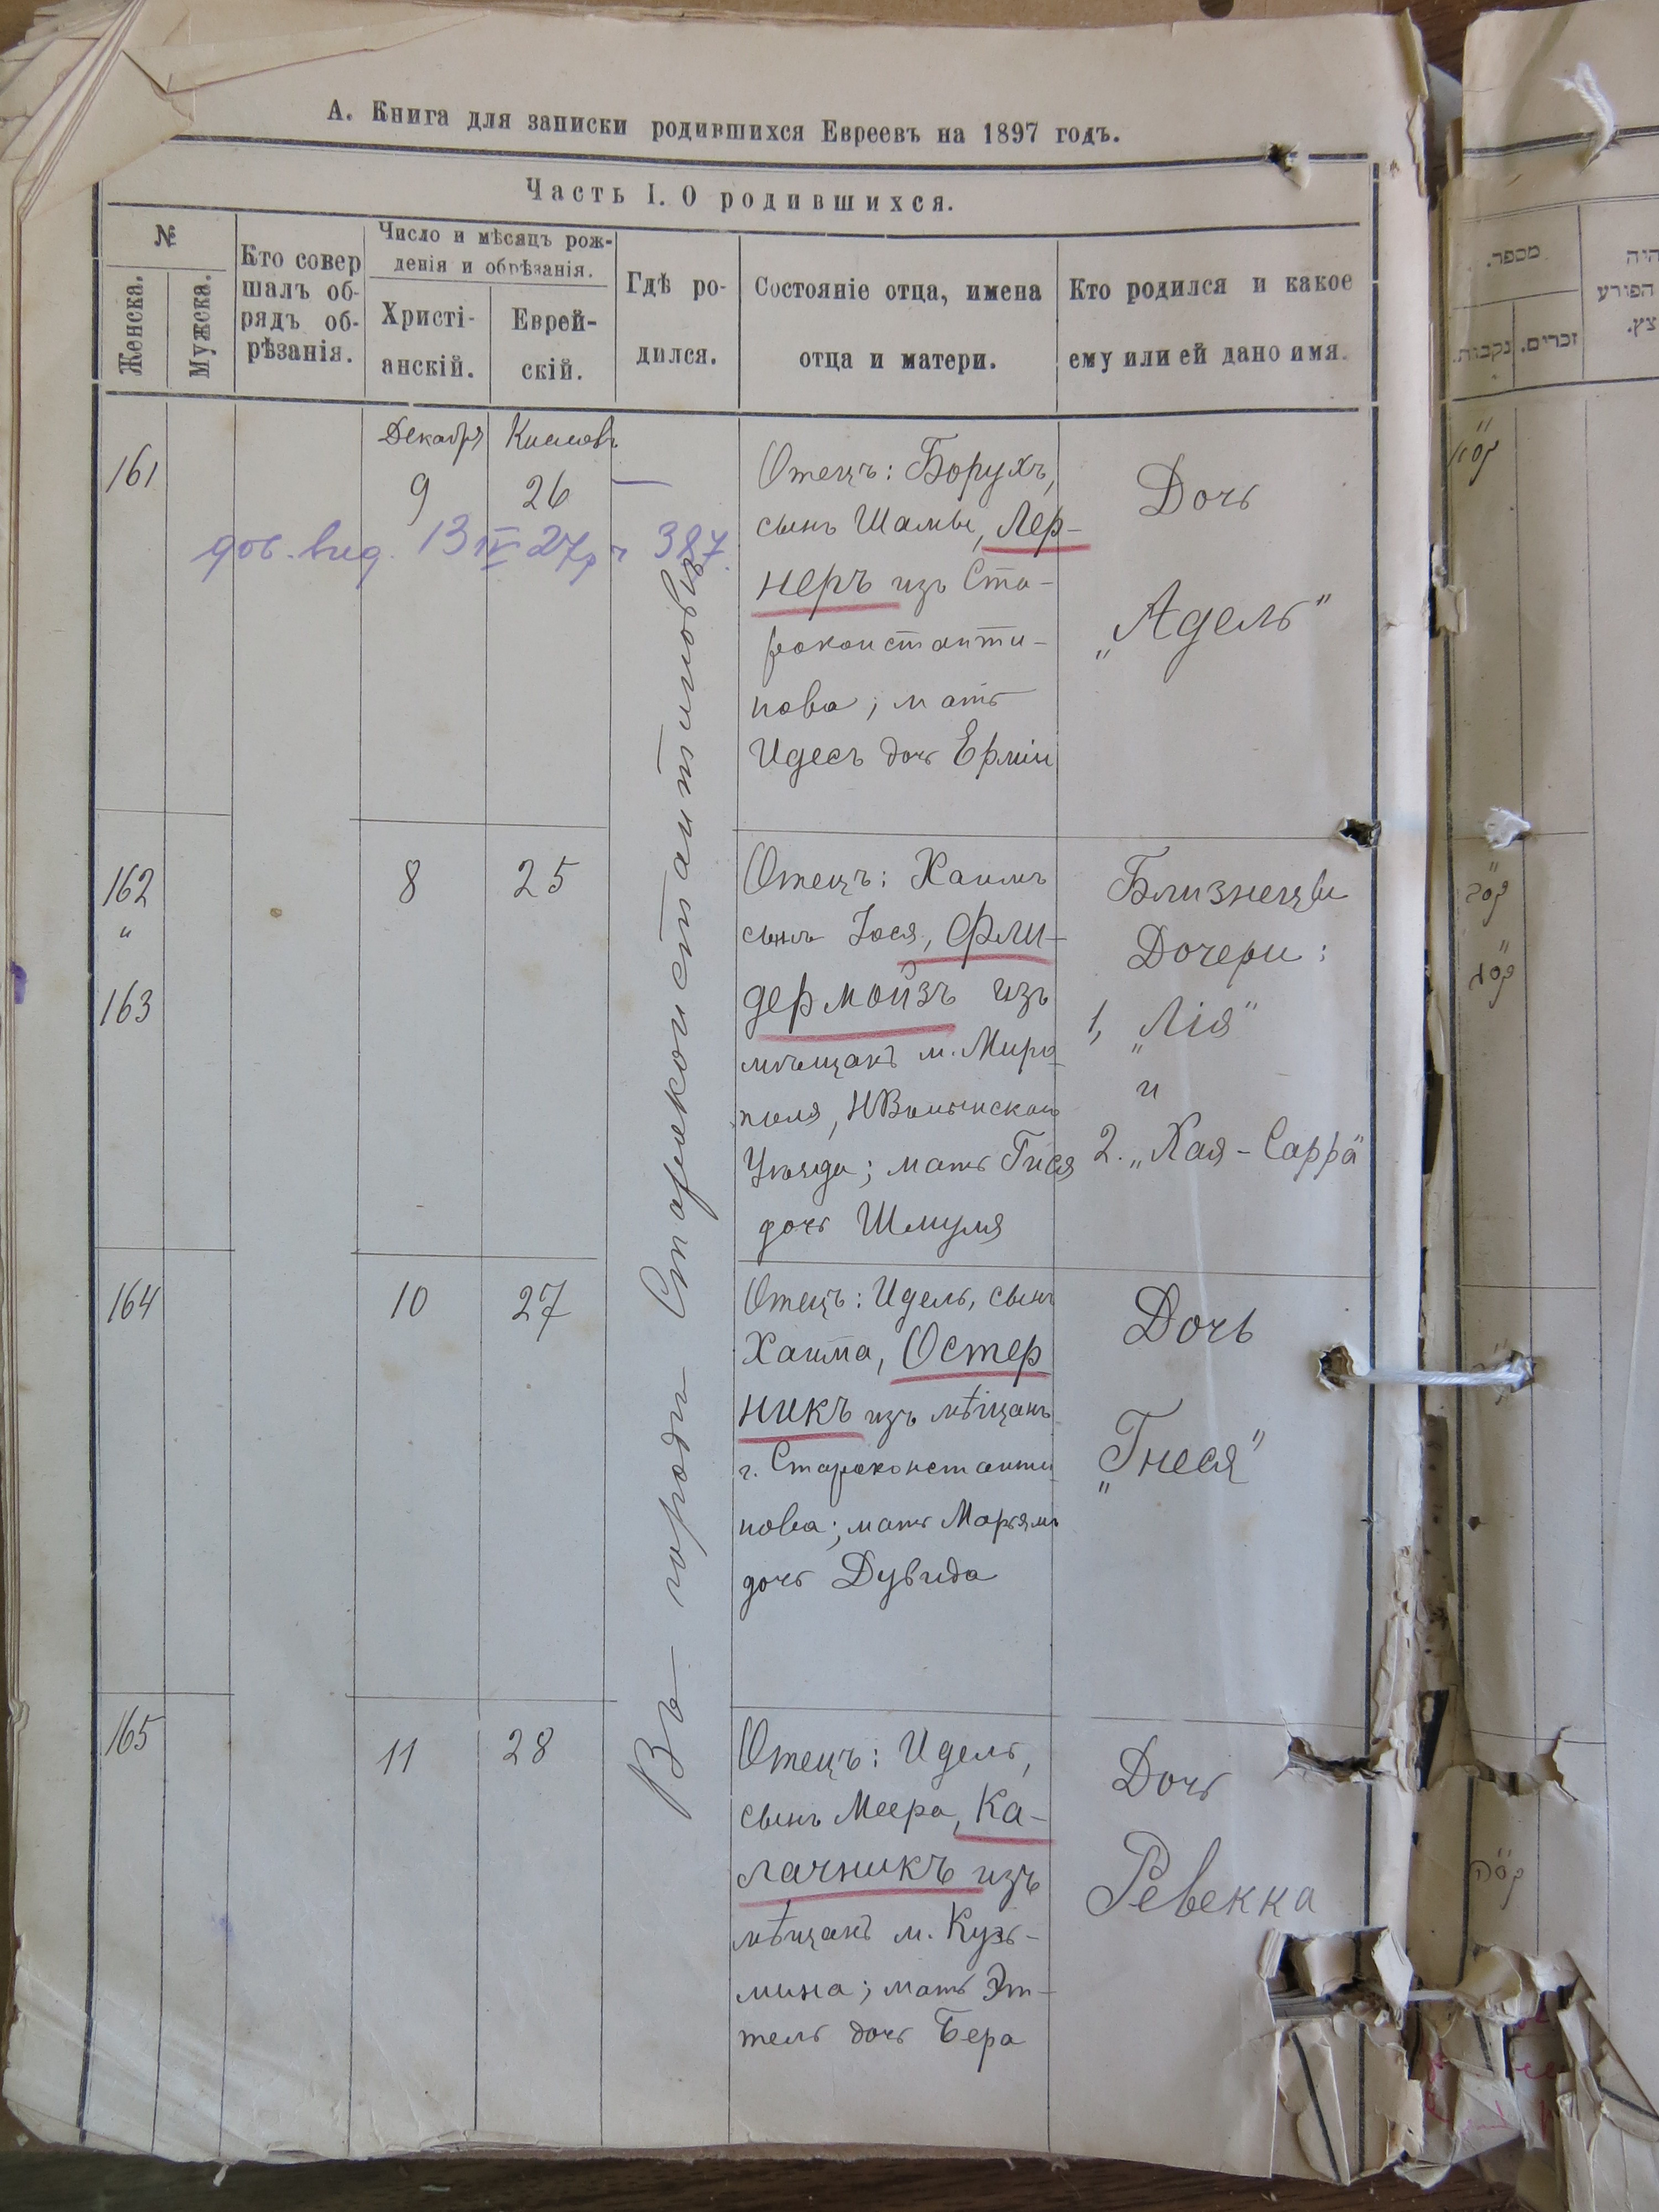 А. Книга для записки родившихся Евреевъ на 1897 годъ.
Часть I. О родившихся.
№
Женска.
Мужска.
Кто совер
шалъ об-
рядъ об-
рѣзанія.
Число и мѣсяцъ рож-
денія и обрѣзанія.
Христі-
анскій.
Еврей-
скій.
Гдѣ ро-
дился.
Состояніе отца, имена
отца и матери.
Кто родился и какое
ему или ей дано имя.
Въ городѣ Староконстантиновѣ
161
Декабря
9
Кислевъ
26
—
дов. вид. 13 IV 27р ч 387.
Отецъ: Борухъ,
сынъ Шамы, Лер-
неръ изъ Ста-
роконстанти-
нова; мать
Идесъ дочь
Дочь
„Адель"
162
"
163
8
25
Отецъ: Хаимъ
сынъ Іося, Фли-
дермойзъ изъ
мѣщанъ м. Миро-
поля, НВолынскаго
Уѣзда; мать Гися
дочь Шмуля
Близнецы
Дочери:
1, „Лія"
и
2. „Хая-Сарра"
164
10
27
Отецъ: Идель, сынъ
Хаима, Остер
никъ изъ мѣщанъ
г. Староконстанти
нова; мать Марьямъ
дочь Дувида
Дочь
„Гнеся"
165
11
28
Отецъ: Идель,
сынъ Меера, Ка-
лачникъ изъ
мѣщанъ м. Кузь-
мина; мать Эт-
тель дочь Бера
Дочь
Ревекка
מספר.
נקבות.
זכרים.
קס״א
קס״ב
קס״ג
קס״ה